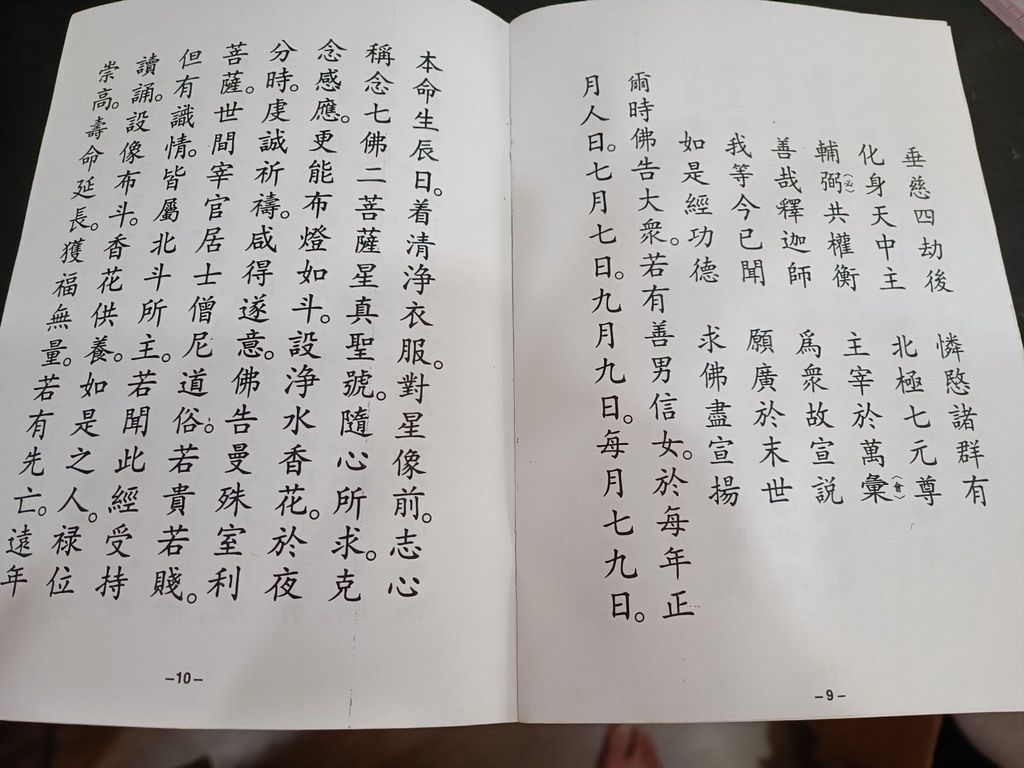 垂慈四劫後　憐愍諸群有
化身天中主　北極七元尊
輔弼(必)共權衡　主宰於萬彙(會)
善哉釋迦師　爲衆故宣説
我等今已聞　願廣於末世
如是經功德　求佛盡宣揚
爾時佛告大衆。若有善男信女。於每年正
月人日。七月七日。九月九日。每月七九日。
－9－
本命生辰日。着清淨衣服。對星像前。志心
稱念七佛二菩薩星真聖號。隨心所求。克
念感應。更能布燈如斗。設淨水香花。於夜
分時。虔誠祈禱。咸得遂意。佛告曼殊室利
菩薩。世間宰官居士僧尼道俗。若貴若賤。
但有識情。皆屬北斗所主。若聞此經受持
讀誦。設像布斗。香花供養。如是之人。禄位
崇高。壽命延長。獲福無量。若有先亡。遠年
－10－